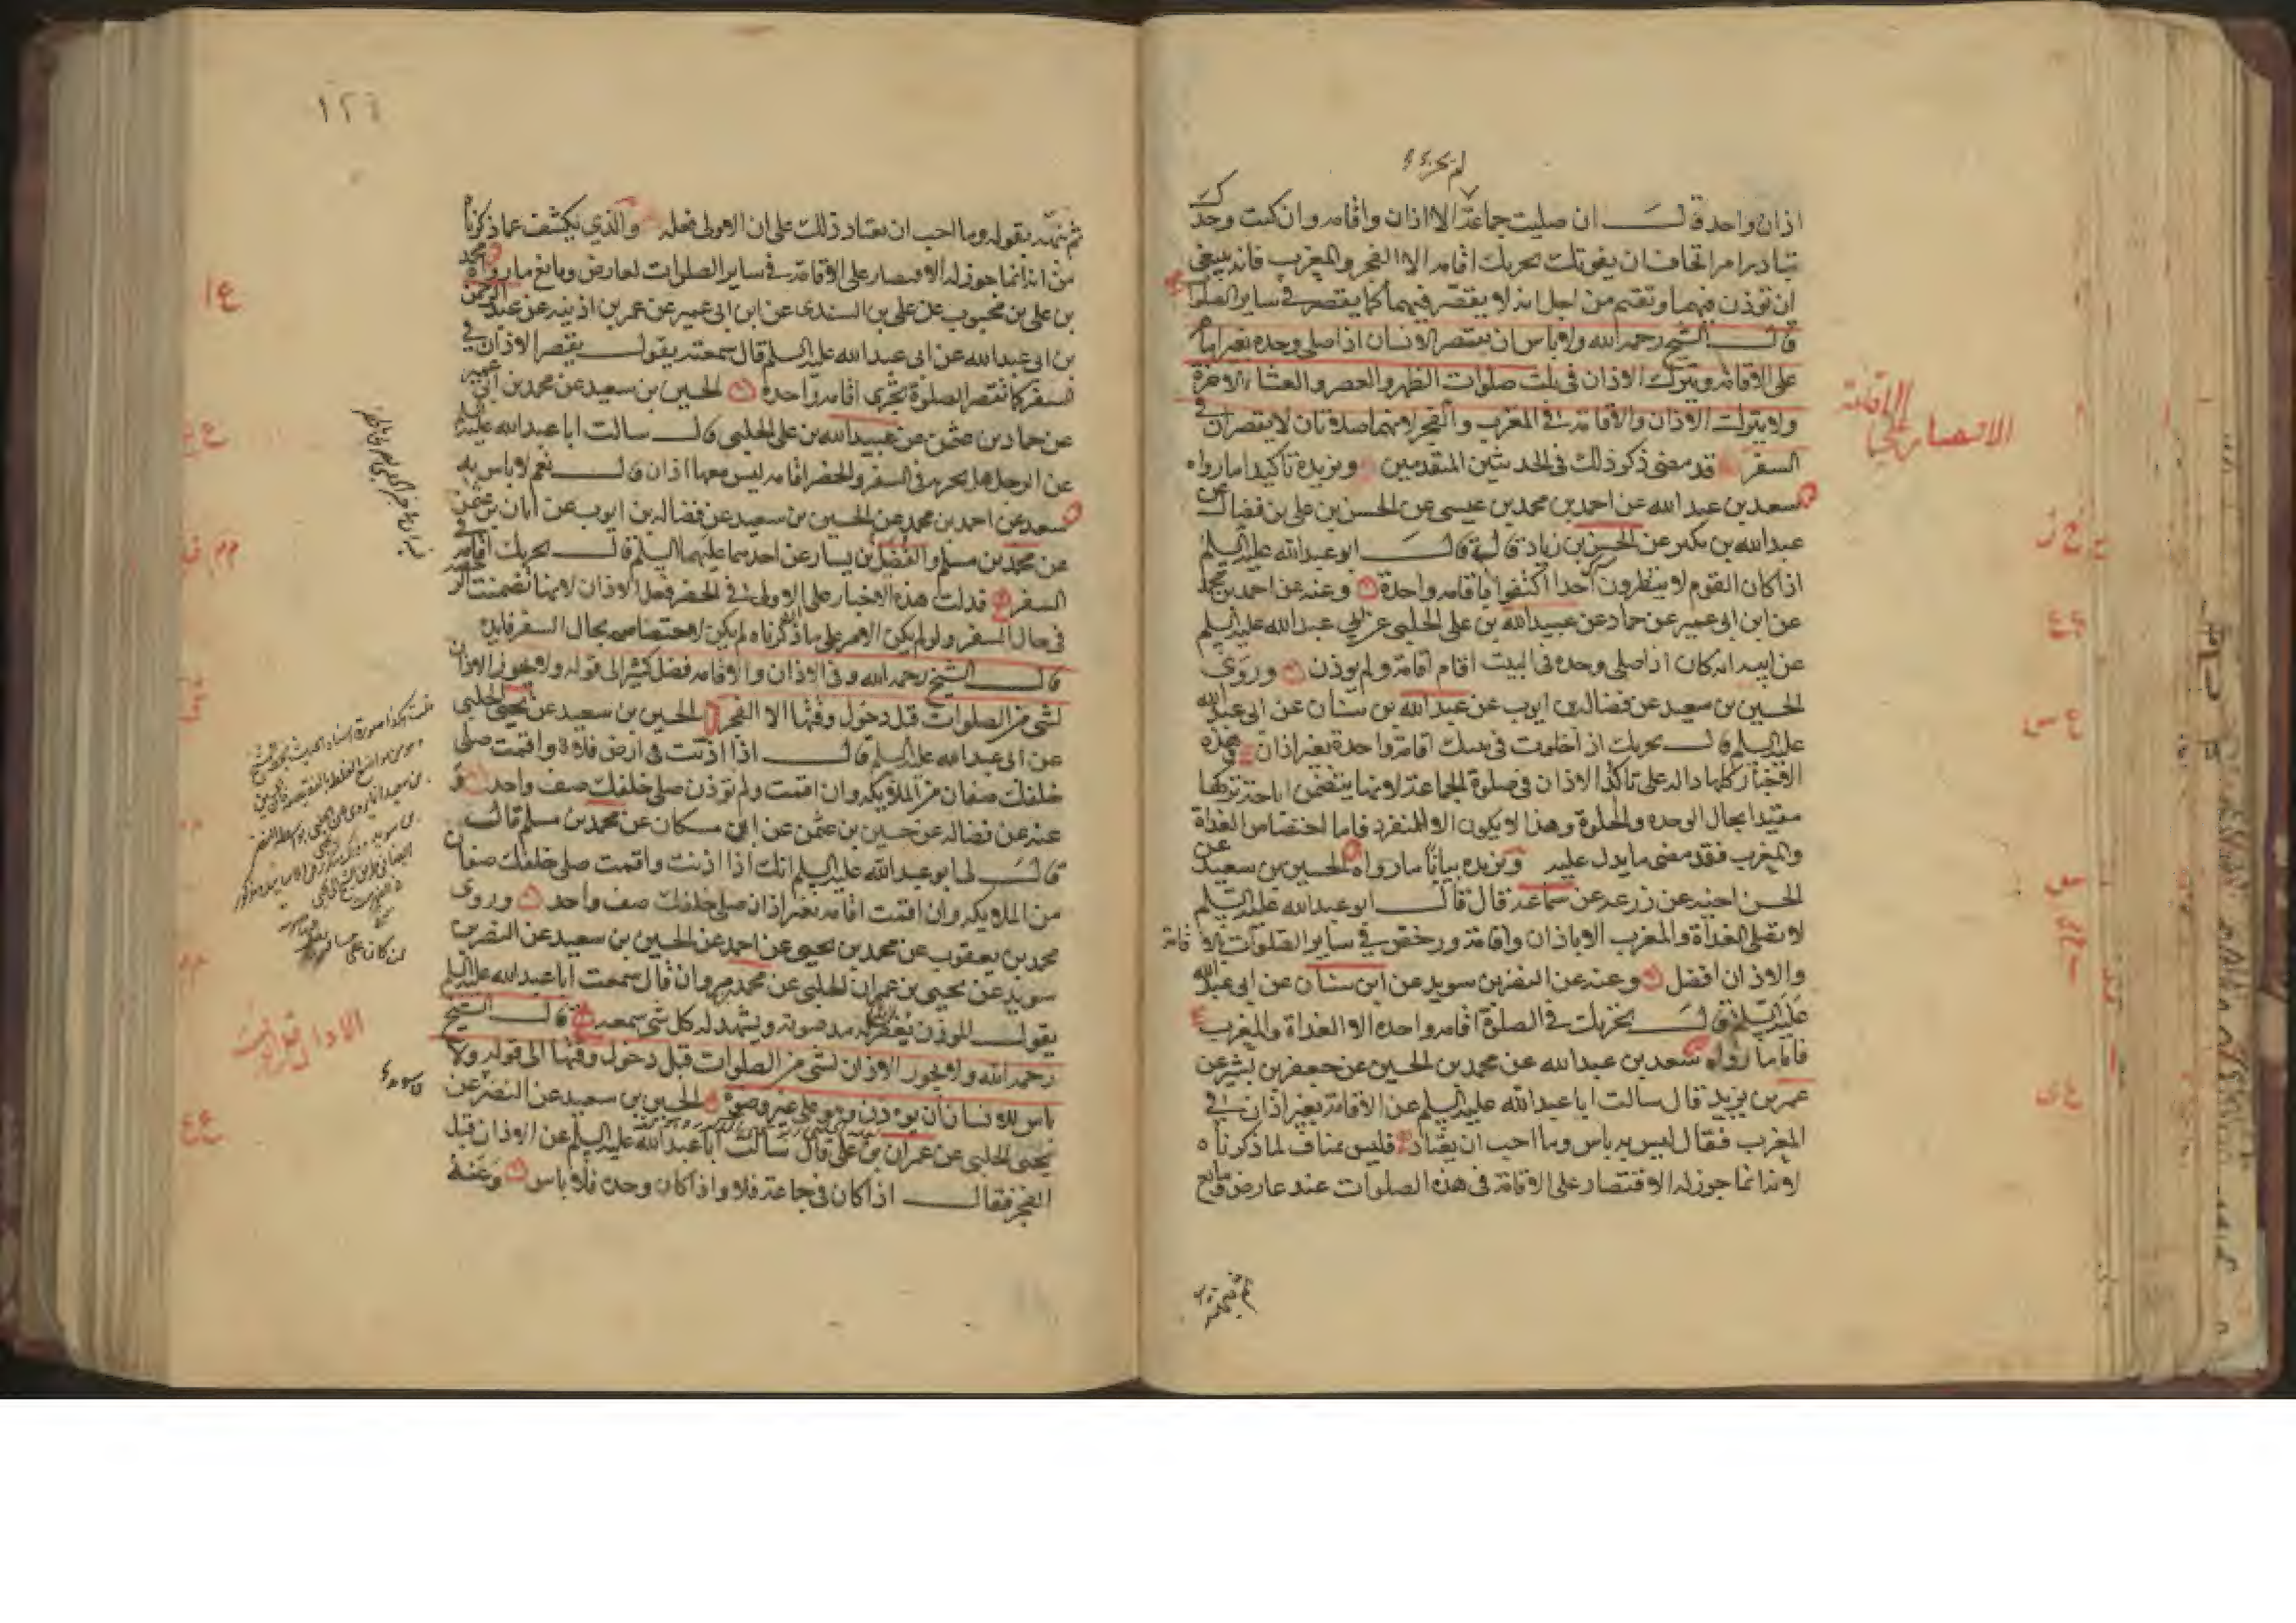 اذان واحد قال ان صليت جماعة الا اذان واقامه وان كنت وحدك
تبادر امرا تخاف ان يفوتك تجزيك اقامه الا الفجر والمغرب فانه ينبغي
ان تؤذن فيهما وتقيم من اجل انه لا يقصر فيهما كما يقصر في ساير الصلوات
قال الشيخ رحمه الله ولا باس ان يقتصر الانسان اذا صلى وحده بغير امام
على الاقامه ويترك الاذان في ثلث صلوات الظهر والعصر والعشاء الاخرة
ولا يترك الاذان والاقامة في المغرب والفجر لانهما صلاتان لا يقصران في
السفر قد مضى ذكر ذلك في الحديثين المتقدمين ويزيده تاكيدا ما رواه
سعد بن عبد الله عن احمد بن محمد بن عيسى عن الحسن بن علي بن فضال عن
عبدالله بن بكير عن الحسن بن زياد قال قال ابو عبدالله عليه السلم
اذا كان القوم لا ينتظرون احدا اكتفوا باقامه واحدة وعنه عن احمد بن محمد
عن ابن ابي عمير عن حماد عن عبيدالله بن علي الحلبي عن ابي عبدالله عليه السلم
عن ابيه انه كان اذا صلى وحده في البيت اقام اقامة ولم يوذن وروى
الحسين بن سعيد عن فضالة بن ايوب عن عبدالله بن سنان عن ابي عبدالله
عليه السلم قال يجزيك اذا خلوت في بيتك اقامة واحدة بغير اذان فهذه
الاخبار كلها دالة على تاكد الاذان في صلوة الجماعة لانها يتضمن اباحة تركها
مقيدا بحال الوحده والخلوة وهذا لا يكون الا للمنفرد فاما اختصاص الغداة
والمغرب فقد مضى ما يدل عليه ويزيده بيانا ما رواه الحسين بن سعيد عن
الحسن اخيه عن زرعه عن سماعة قال قال ابو عبدالله عليه السلم
لا تصلي الغداة والمغرب الا باذان واقامة ورخص في ساير الصلوات بالاقامة
والاذان افضل وعنه عن النضر بن سويد عن ابن سنان عن ابي عبدالله
عليه السلم قال يجزيك في الصلوة اقامه واحده الا الغداة والمغرب
فاما ما رواه سعد بن عبدالله عن محمد بن الحسين عن جعفر بن بشير عن
عمر بن يزيد قال سالت ابا عبدالله عليه السلم عن الاقامة بغير اذان في
المغرب فقال ليس به باس وما احب ان يعتاد فليس بمناف لما ذكرناه
لانه انما جوز له الاقتصار على الاقامة في هذه الصلوات عند عارض ومانع
الاقتصار على الاقامة
١٢٤
ثم نبه بقوله وما احب ان يعتاد ذلك على ان الاولى فعله والذي يكشف عما ذكرناه
من انه انما جوز له الاقتصار على الاقامة في ساير الصلوات لعارض ومانع ما رواه محمد
بن علي بن محبوب عن علي بن السندي عن ابن ابي عمير عن عمر بن اذينه عن عبد الرحمن
بن ابي عبدالله عن ابي عبدالله عليه السلم قال سمعته يقول يقصر الاذان في
السفر كما تقصر الصلوة تجزى اقامه واحده الحسين بن سعيد عن محمد بن ابي عمير
عن حماد بن عثمن عن عبيدالله بن علي الحلبي قال سالت ابا عبدالله عليه السلم
عن الرجل هل يجزيه في السفر والحضر اقامه ليس معها اذان قال نعم لا باس به
سعد عن احمد بن محمد عن الحسين بن سعيد عن فضاله بن ايوب عن ابان بن عثمن
عن محمد بن مسلم والفضيل بن يسار عن احدهما عليهما السلم قال يجزيك اقامه في
السفر قد دلت هذه الاخبار على ان الاولى في الحضر فعل الاذان لانها تضمنت الرخصة
في حال السفر ولو لم يكن الامر على ما ذكرناه لم يكن لاختصاصه بحال السفر فايده
قال الشيخ رحمه الله وفي الاذان والاقامه فضل كثير الى قوله ولا يجوز الاذان
لشي من الصلوات قبل دخول وقتها الا الفجر الحسين بن سعيد عن يحيى الحلبي
عن ابي عبدالله عليه السلم قال اذا اذنت في ارض فلاة واقمت صلى
خلفك صفان من الملايكه وان اقمت ولم توذن صلى خلفك صف واحد و
عنه عن فضاله عن حسين بن عثمن عن ابن مسكان عن محمد بن مسلم قال
قال لي ابو عبدالله عليه السلم انك اذا اذنت واقمت صلى خلفك صفان
من الملايكه وان اقمت اقامه بغير اذان صلى خلفك صف واحد وروى
محمد بن يعقوب عن محمد بن يحيى عن احمد عن الحسين بن سعيد عن النضر بن
سويد عن يحيى بن عمران الحلبي عن محمد بن مروان قال سمعت ابا عبدالله عليه السلم
يقول الموذن يغفر له مد صوته ويشهد له كل شي سمعه قال الشيخ
رحمه الله ولا يجوز الاذان لشي من الصلوات قبل دخول وقتها الى قوله ولا
باس للانسان ان يوذن وهو على غير وضوء الحسين بن سعيد عن النضر عن
يحيى الحلبي عن عمران بن علي قال سالت ابا عبدالله عليه السلم عن الاذان قبل
الفجر فقال اذا كان في جماعة فلا واذا كان وحده فلا باس وعنه